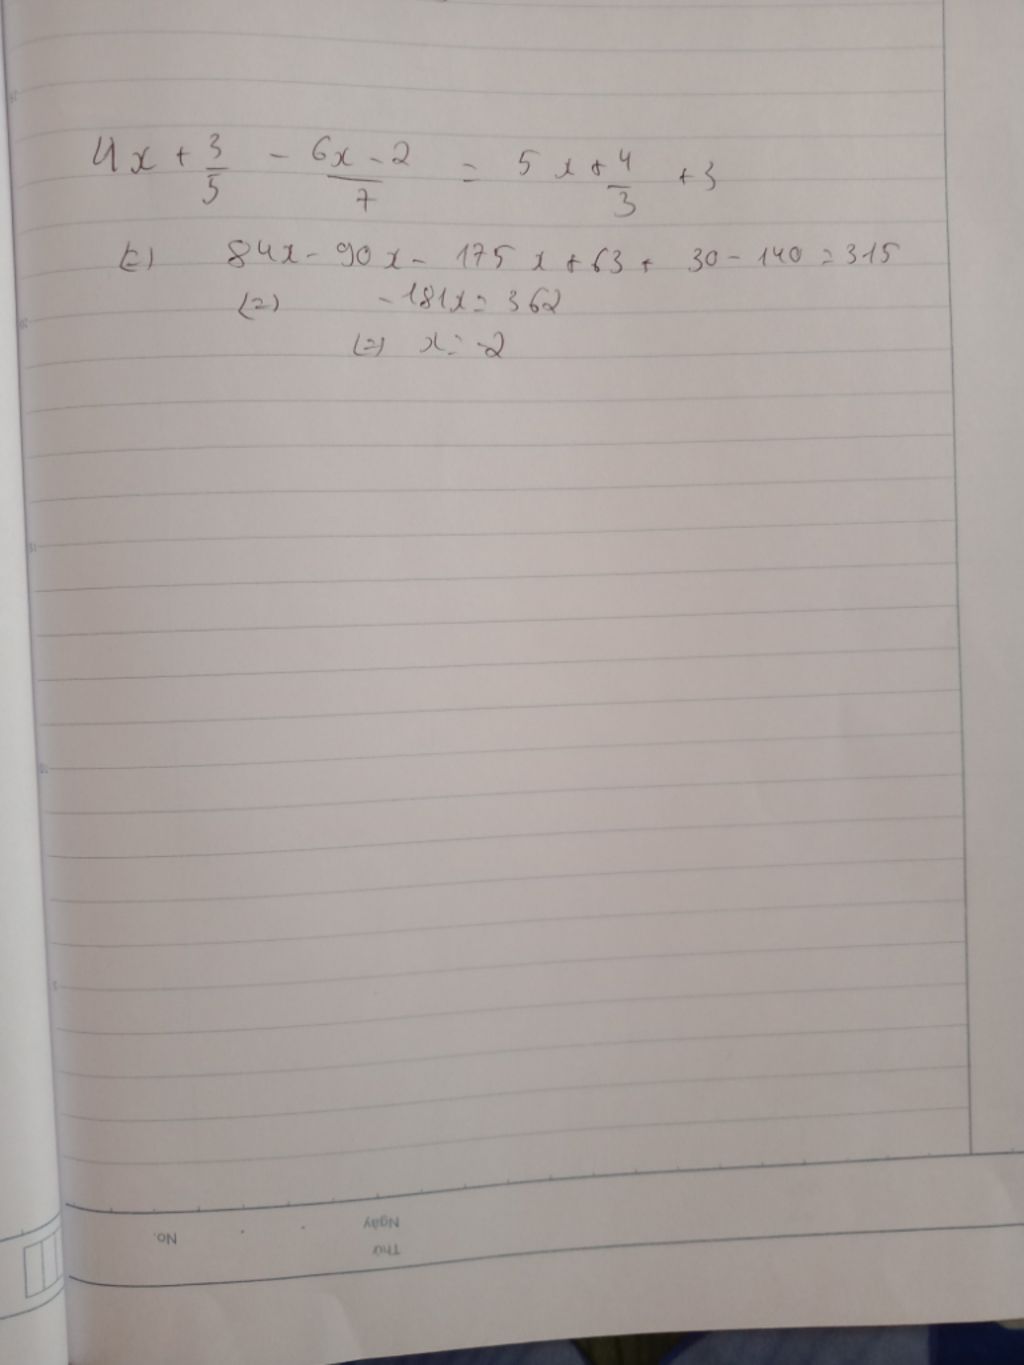 4x + 3/5 - 6x - 2/7 = 5x + 4/3 + 3
(=) 84x - 90x - 175x + 63 + 30 - 140 = 315
(=) -181x = 362
(=) x = -2
No.
Ngày
Thứ